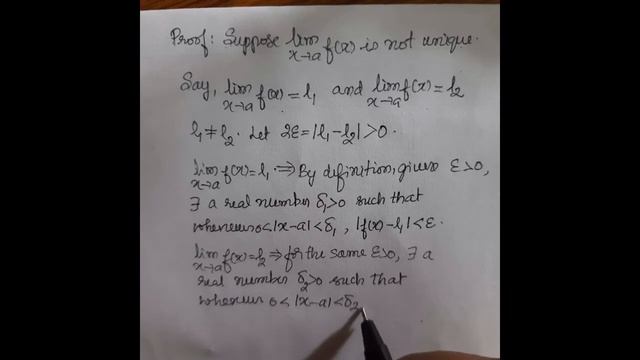 Proof: Suppose lim x→a f(x) is not unique.
Say, lim x→a f(x) = l₁ and lim x→a f(x) = l₂
l₁ ≠ l₂. Let 2ε = |l₁ - l₂| > 0.
lim x→a f(x) = l₁ ⇒ By definition, given ε>0,
∃ a real number δ₁>0 such that
whenever 0<|x-a|<δ₁, |f(x)-l₁|<ε.
lim x→a f(x) = l₂ ⇒ for the same ε>0, ∃ a
real number δ₂>0 such that
whenever 0<|x-a|<δ₂